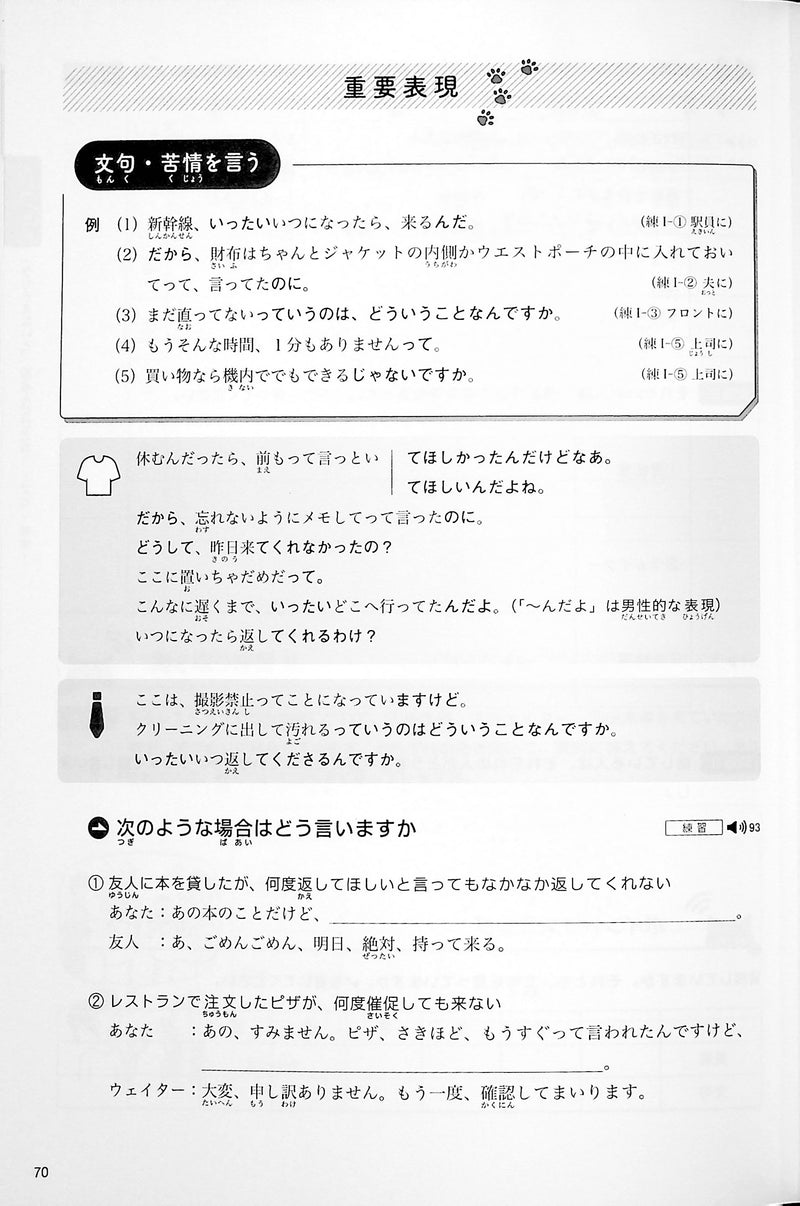 重要表現
文句・苦情を言う
もんく くじょう
例 (1) 新幹線、いったいいつになったら、来るんだ。 (練Ⅰ-① 駅員に)
しんかんせん えきいん
(2) だから、財布はちゃんとジャケットの内側かウエストポーチの中に入れておい
さいふ うちがわ
てって、言ってたのに。 (練Ⅰ-② 夫に)
おっと
(3) まだ直ってないっていうのは、どういうことなんですか。 (練Ⅰ-③ フロントに)
なお
(4) もうそんな時間、1分もありませんって。 (練Ⅰ-⑤ 上司に)
じょうし
(5) 買い物なら機内ででもできるじゃないですか。 (練Ⅰ-⑤ 上司に)
きない
休むんだったら、前もって言っとい てほしかったんだけどなあ。
まえ
てほしいんだよね。
だから、忘れないようにメモしてって言ったのに。
わす
どうして、昨日来てくれなかったの？
きのう
ここに置いちゃだめだって。
お
こんなに遅くまで、いったいどこへ行ってたんだよ。（「～んだよ」は男性的な表現）
おそ だんせいてき ひょうげん
いつになったら返してくれるわけ？
かえ
ここは、撮影禁止ってことになっていますけど。
さつえいきんし
クリーニングに出して汚れるっていうのはどういうことなんですか。
よご
いったいいつ返してくださるんですか。
かえ
次のような場合はどう言いますか 練習 93
つぎ ばあい
① 友人に本を貸したが、何度返してほしいと言ってもなかなか返してくれない
ゆうじん かえ
あなた：あの本のことだけど、＿＿＿＿＿＿＿＿＿＿＿＿＿＿＿＿。
友人 ：あ、ごめんごめん、明日、絶対、持って来る。
ぜったい
② レストランで注文したピザが、何度催促しても来ない
ちゅうもん さいそく
あなた ：あの、すみません。ピザ、さきほど、もうすぐって言われたんですけど、
＿＿＿＿＿＿＿＿＿＿＿＿＿＿＿＿。
ウェイター：大変、申し訳ありません。もう一度、確認してまいります。
たいへん もう わけ かくにん
70